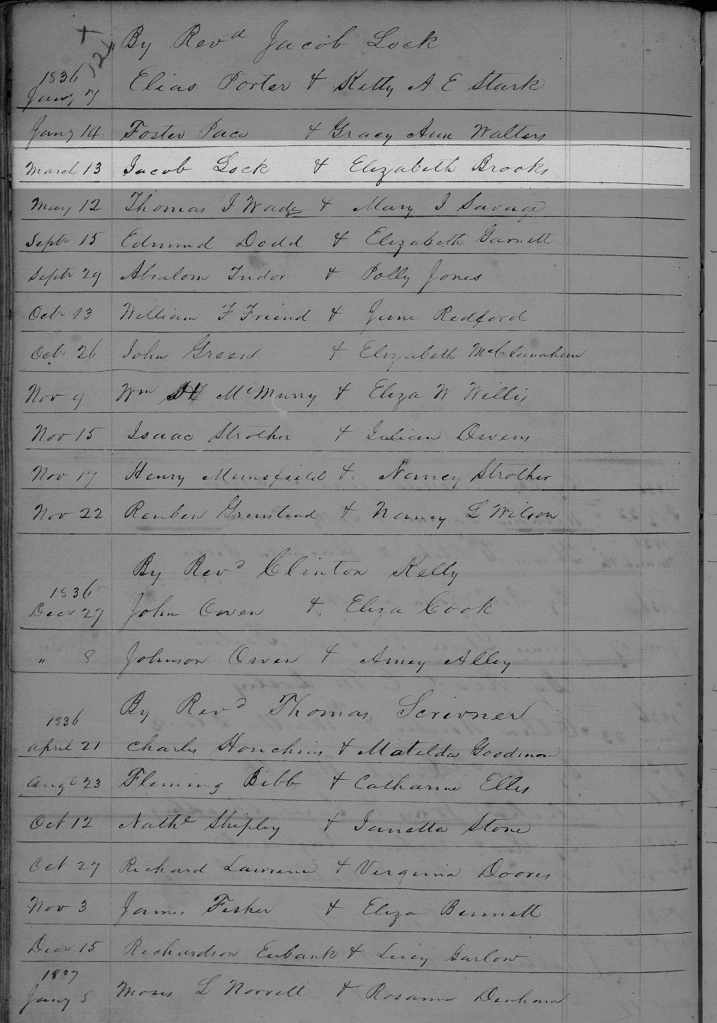 124
By Revd Jacob Lock
1836
Jany 7 Elias Porter & Kitty A E Stark
Jany 14 Foster Pace & Gracy Ann Walters
March 13 Jacob Lock & Elizabeth Brooks
May 12 Thomas J Wade & Mary J Savage
Septr 15 Edmund Dodd & Elizabeth Garnett
Septr 29 Absalom Tudor & Polly Jones
Oct 13 William F Friend & June Redford
Oct 26 John Green & Elizabeth McClanahan
Nov 9 Wm McMurry & Eliza W Willis
Nov 15 Isaac Strother & Julian Owens
Nov 17 Henry Munsfield & Nancy Strother
Nov 22 Reuben Grinstead & Nancy L Wilson
By Revd Clinton Kelly
1836
Decr 27 John Owen & Eliza Cook
" 8 Johnson Owen & Amey Alley
By Revd Thomas Scrivner
1836
April 21 Charles Honchins & Matilda Goodman
Augt 23 Fleming Bibb & Catharine Ellis
Oct 12 Nathl Shipley & Janetta Stone
Oct 27 Richard & Virginia Doores
Nov 3 James Fisher & Eliza Bennett
Decr 15 Richardson Eubank & Lucy Garlow
1837
Jany 5 Moses L Norvell & Rosanna Denham